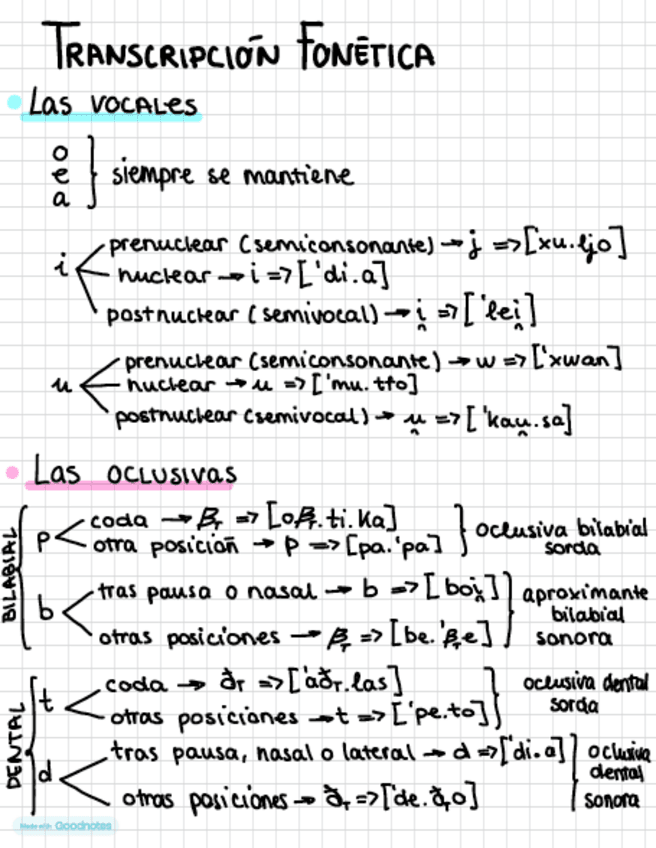 TRANSCRIPCIÓN FONÉTICA
Las VOCALES
o
e
a
siempre se mantiene
i
prenuclear (semiconsonante) → j => [xu.ljo]
nuclear → i => ['di.a]
postnuclear (semivocal) → i̯ => ['lei̯]
u
prenuclear (semiconsonante) → w => ['xwan]
nuclear → u => ['mu.tʃo]
postnuclear (semivocal) → u̯ => ['kau̯.sa]
Las OCLUSIVAS
BILABIAL
p
coda → β̞ => [oβ̞.ti.ka]
otra posición → p => [pa.'pa]
oclusiva bilabial
sorda
b
tras pausa o nasal → b => [boi̯]
otras posiciones → β̞ => [be.'β̞e]
aproximante
bilabial
sonora
DENTAL
t
coda → ð̞ => ['að̞.las]
otras posiciones → t => ['pe.to]
oclusiva dental
sorda
d
tras pausa, nasal o lateral → d => ['di.a]
otras posiciones → ð̞ => ['de.ð̞o]
oclusiva
dental
sonora
Made with Goodnotes